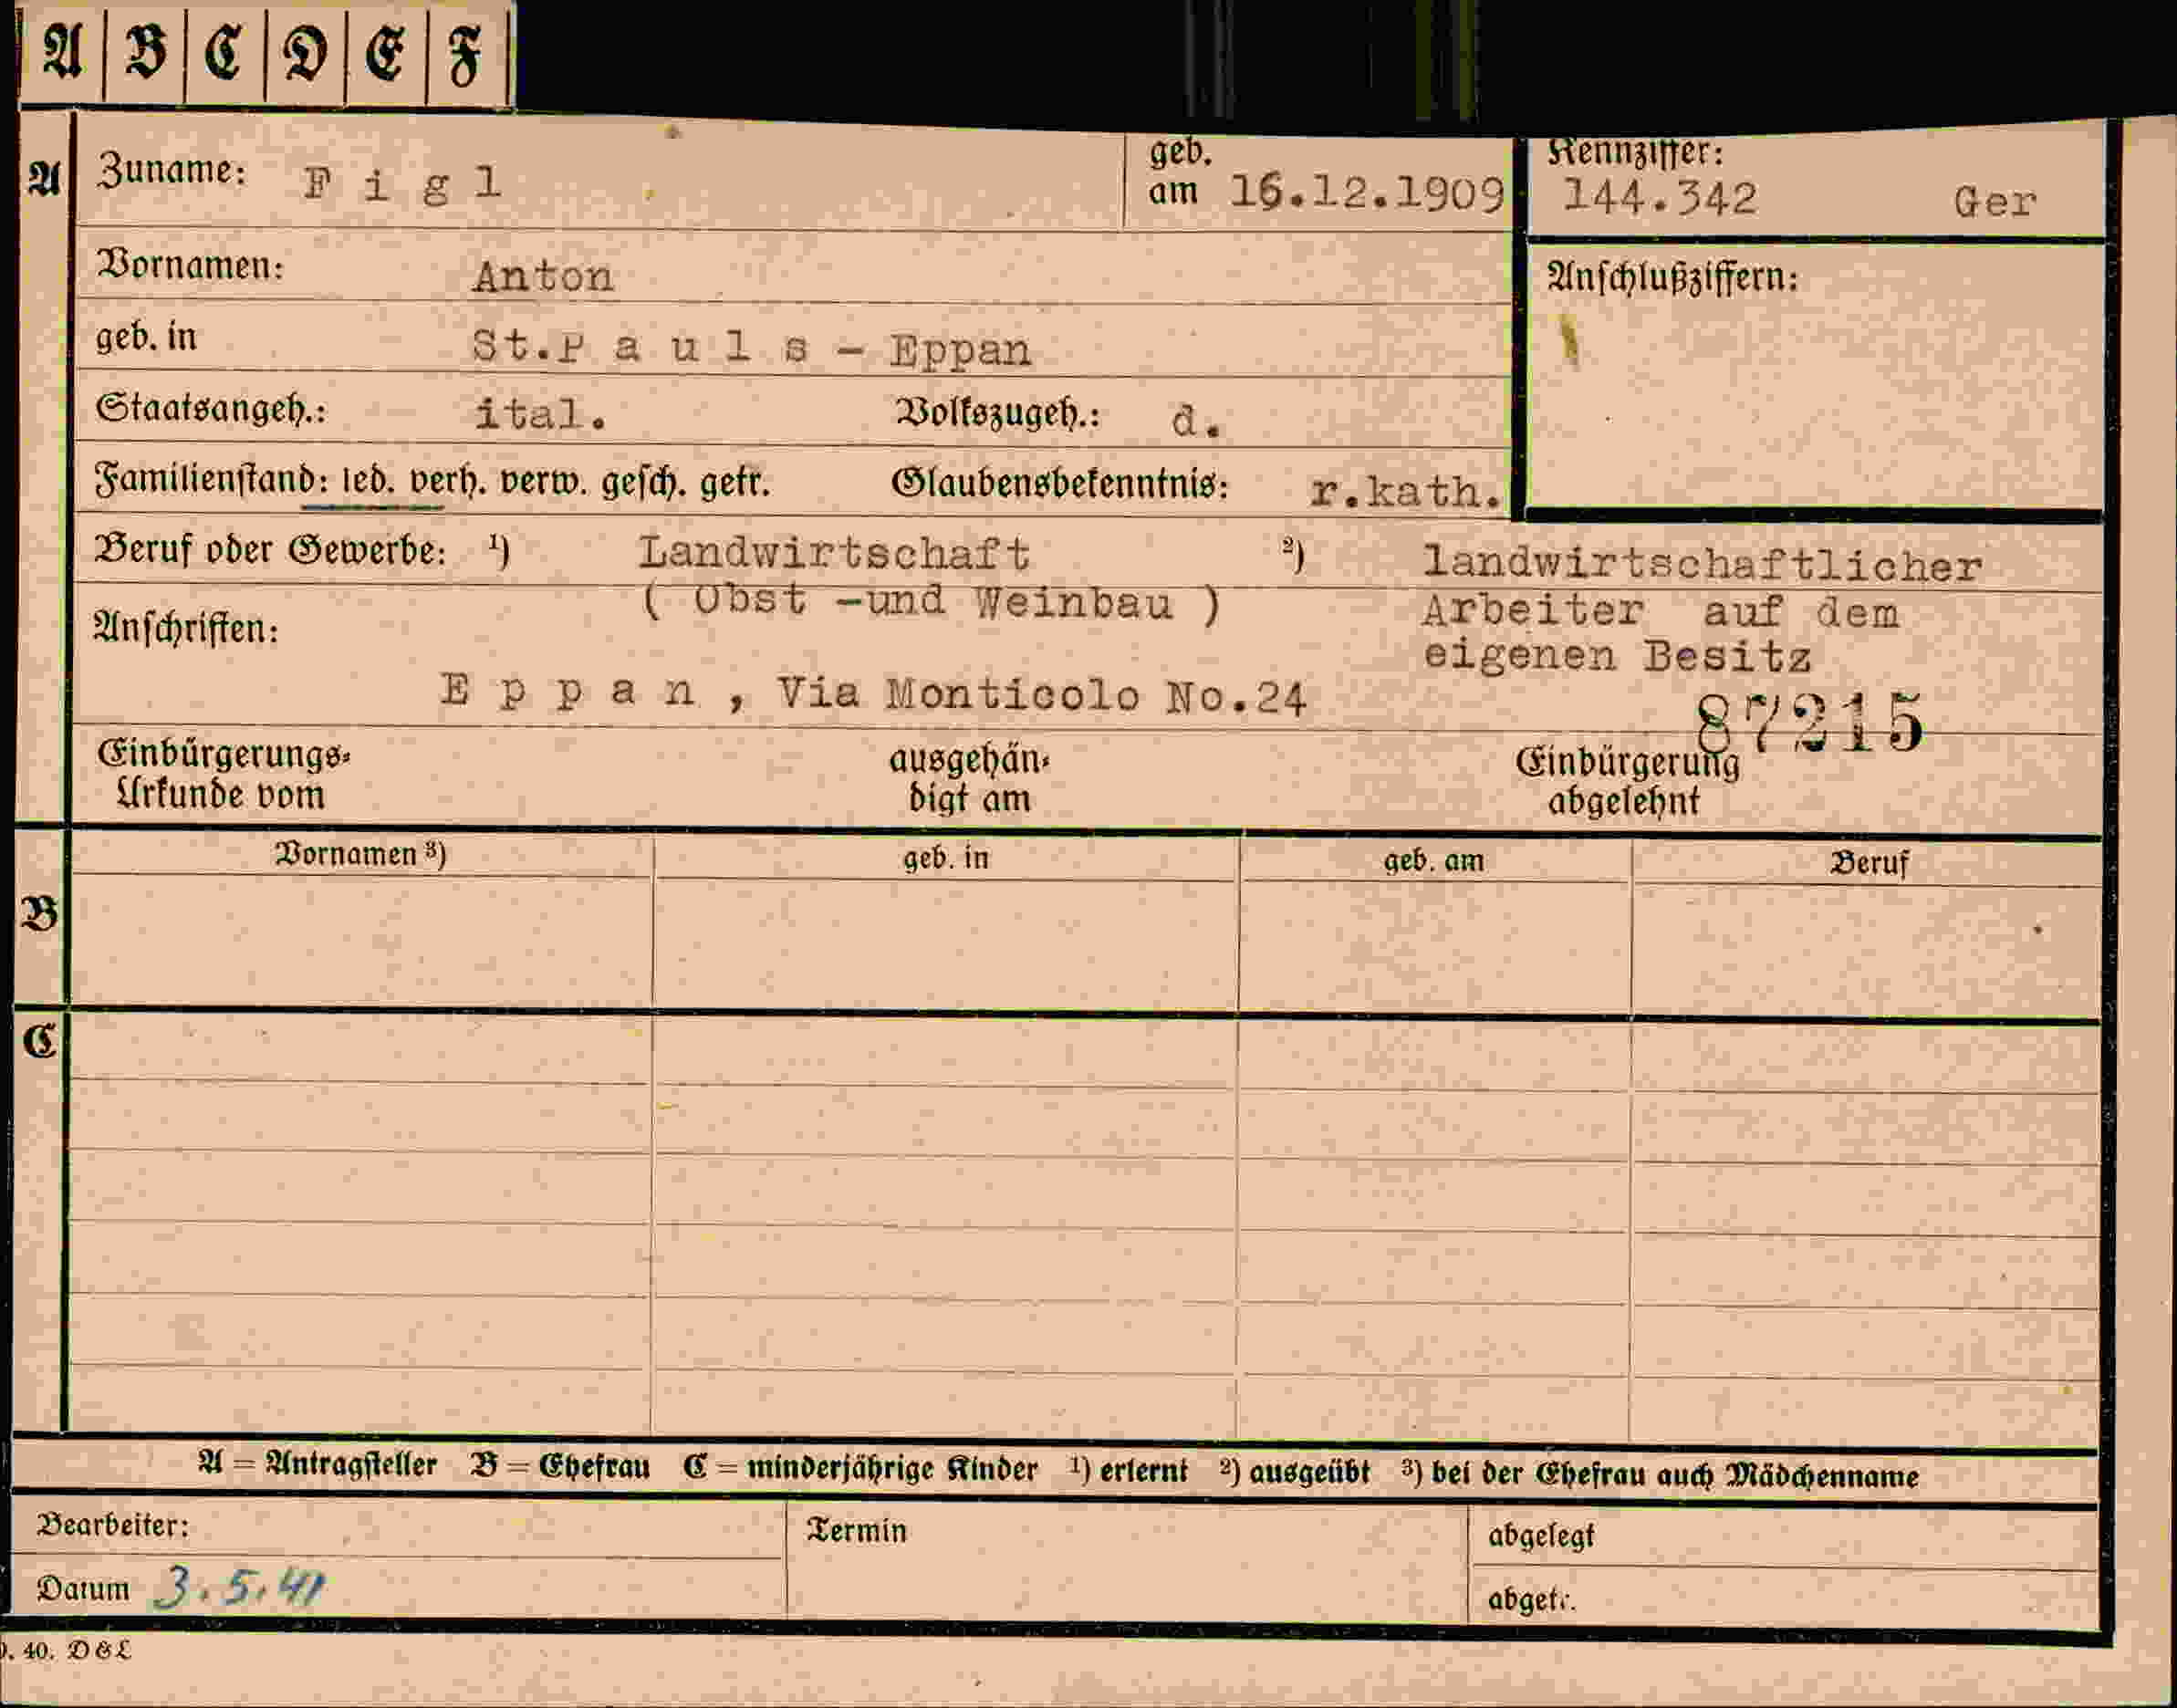 A B C D E F
A Zuname: F i g l geb. am 16.12.1909 Kennziffer: 144.342 Ger
Vornamen: Anton Anschlußziffern:
geb. in St.P a u l s – Eppan
Staatsangeh.: ital. Volkszugeh.: d.
Familienstand: led. verh. verw. gesch. getr. Glaubensbekenntnis: r.kath.
Beruf oder Gewerbe: ¹) Landwirtschaft ²) landwirtschaftlicher
( Obst -und Weinbau ) Arbeiter auf dem
Anschriften: eigenen Besitz
E p p a n , Via Monticolo No.24
87215
Einbürgerungs- ausgehän- Einbürgerung
Urkunde vom digt am abgelehnt
Vornamen ³) geb. in geb. am Beruf
B
C
A = Antragsteller B = Ehefrau C = minderjährige Kinder ¹) erlernt ²) ausgeübt ³) bei der Ehefrau auch Mädchenname
Bearbeiter: Termin abgelegt
Datum 3.5.41 abgetr.
. 40. D&L